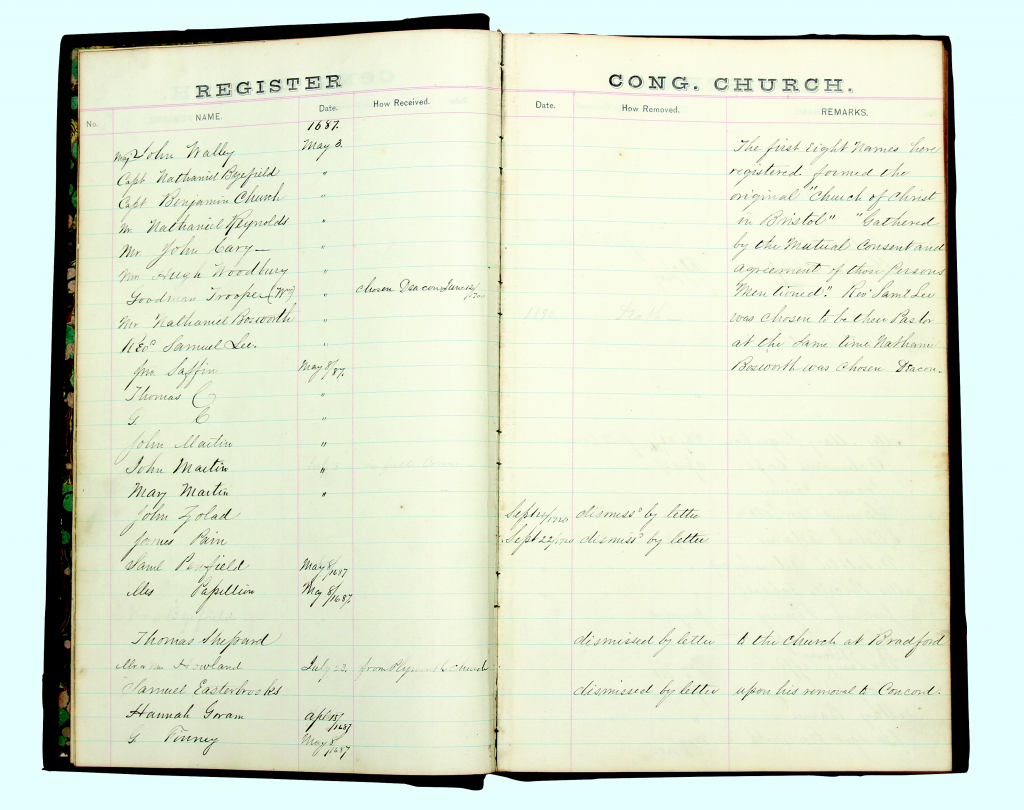 REGISTER
CONG. CHURCH.
No. NAME. Date. How Received. Date. How Removed. REMARKS.
1687.
Maj John Walley May 3. The first Eight Names here
Capt Nathaniel Byefield " registered formed the
Capt Benjamin Church " original "Church of Christ
Mr Nathaniel Reynolds " in Bristol" "Gathered
Mr John Cary " by the Mutual Consent and
Hugh Woodbury " Agreement of those Persons
Goodman Trooper (Wm) " chosen Deacon June Mentioned". Rev Saml Lee
Mr Nathaniel Bosworth " was chosen to be their Pastor
Rev Samuel Lee. " at the same time Nathan
Jno Saffin May 8/87. Bosworth was chosen Deacon.
Thomas "
G "
John Martin "
John Martin "
Mary Martin "
John Sept dismissd by letter
James Pain Sept 22 dismissd by letter
Saml Penfield May 8/1687
Mrs Papillion May 8/1687.
Thomas Shepard dismissed by letter to the Church at Bradford
Howland July 22. from Plymouth church
Samuel Easterbrooks dismissed by letter upon his removal to Concord.
Hannah Goram apl 15/1687
G Pinney May 8/1687